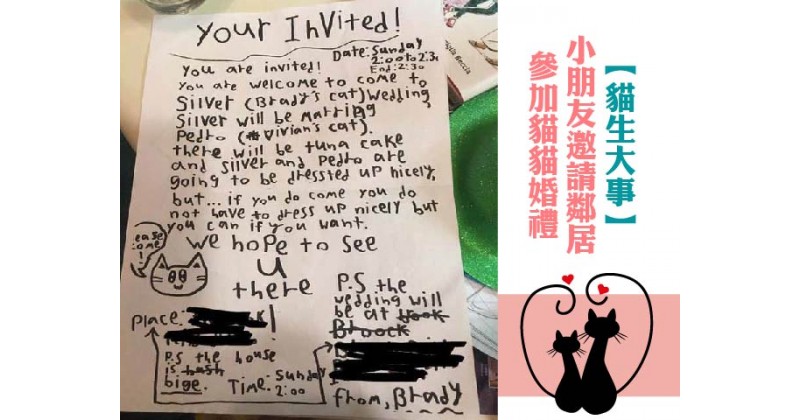 Your Invited!
Date: Sunday
2:00 to 2:30
End: 2:30
You are invited!
You are welcome to come to
Silver (Brady's cat) wedding,
Silver will be marring
Pedro (Vivian's cat).
there will be tuna cake
and Silver and Pedro are
going to be dressted up nicely,
but... if you do come you do
not have to dress up nicely but
you can if you want.
we hope to see
u
there
ease
ome!
Place:
P.S the house
is
bige.
Time: Sunday
2:00
P.S the
wedding will
be at
Broock
from, Brady
【貓生大事】
小朋友邀請鄰居
參加貓貓婚禮